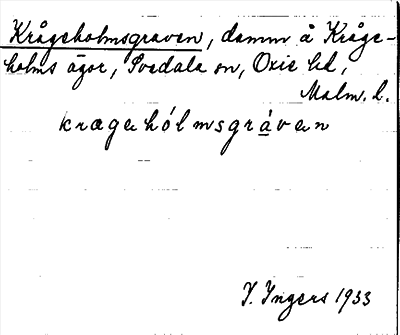 Krågeholmsgraven, damm å Kråge-
holms ägor, Svedala sn, Oxie hd,
Malm. l.
kragehólmsgráven
I. Ingers 1933